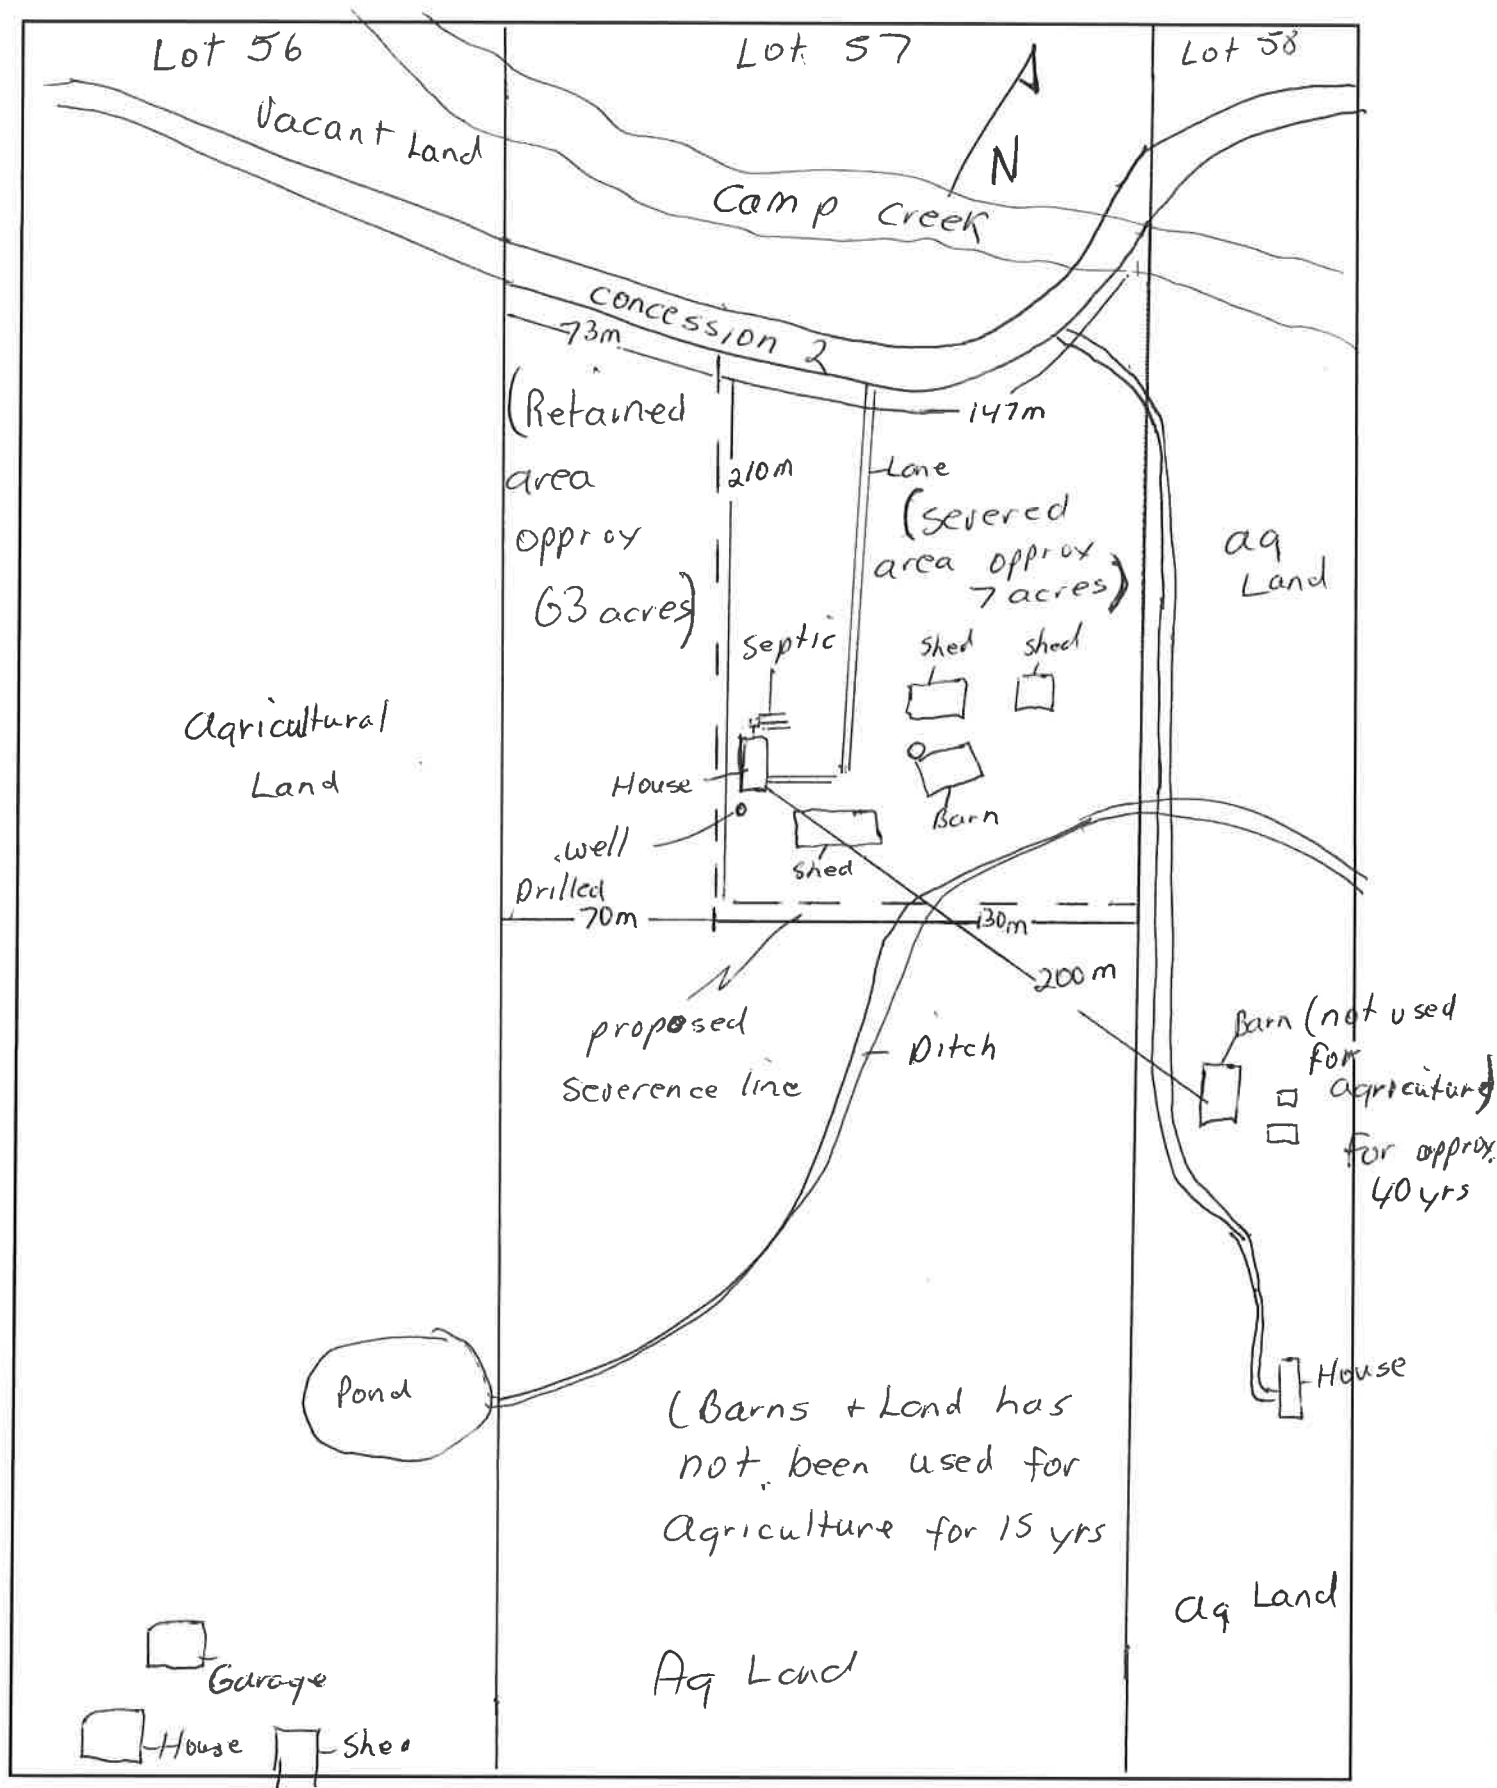 Lot 56
Lot 57
Lot 58
Vacant Land
N
Camp Creek
Concession 2
73m
147m
(Retained
area
opprox
63 acres)
210m
Lane
(severed
area opprox
7 acres)
ag
Land
Septic
Shed
Shed
Agricultural
Land
House
Barn
well
Drilled
Shed
70m
130m
200m
proposed
Severence line
Ditch
Barn (not used
for
agriculture)
for approx.
40 yrs
Pond
House
(Barns + Land has
not been used for
Agriculture for 15 yrs
Ag Land
Ag Land
Garage
House
Shed